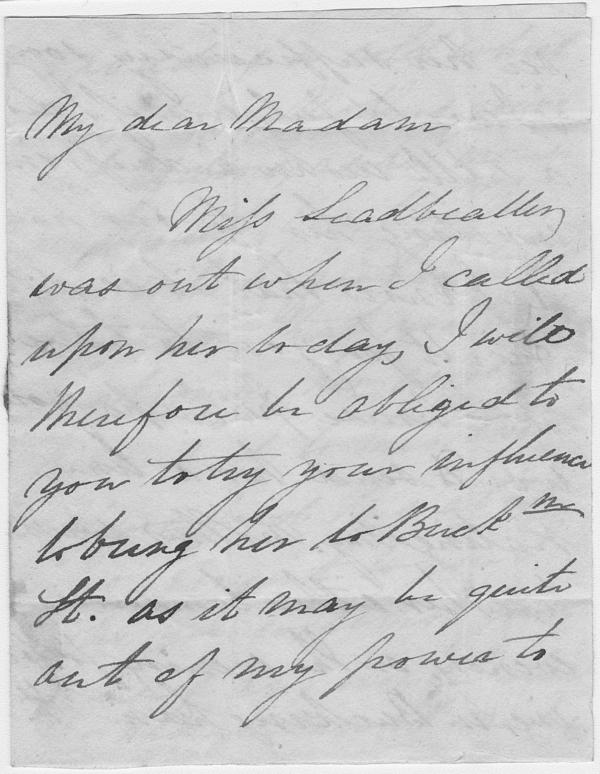 My dear Madam
Miss Leadbeatter
was out when I called
upon her today, I will
therefore be obliged to
you to try your influence
to bring her to Buckm
St. as it may be quite
out of my power to